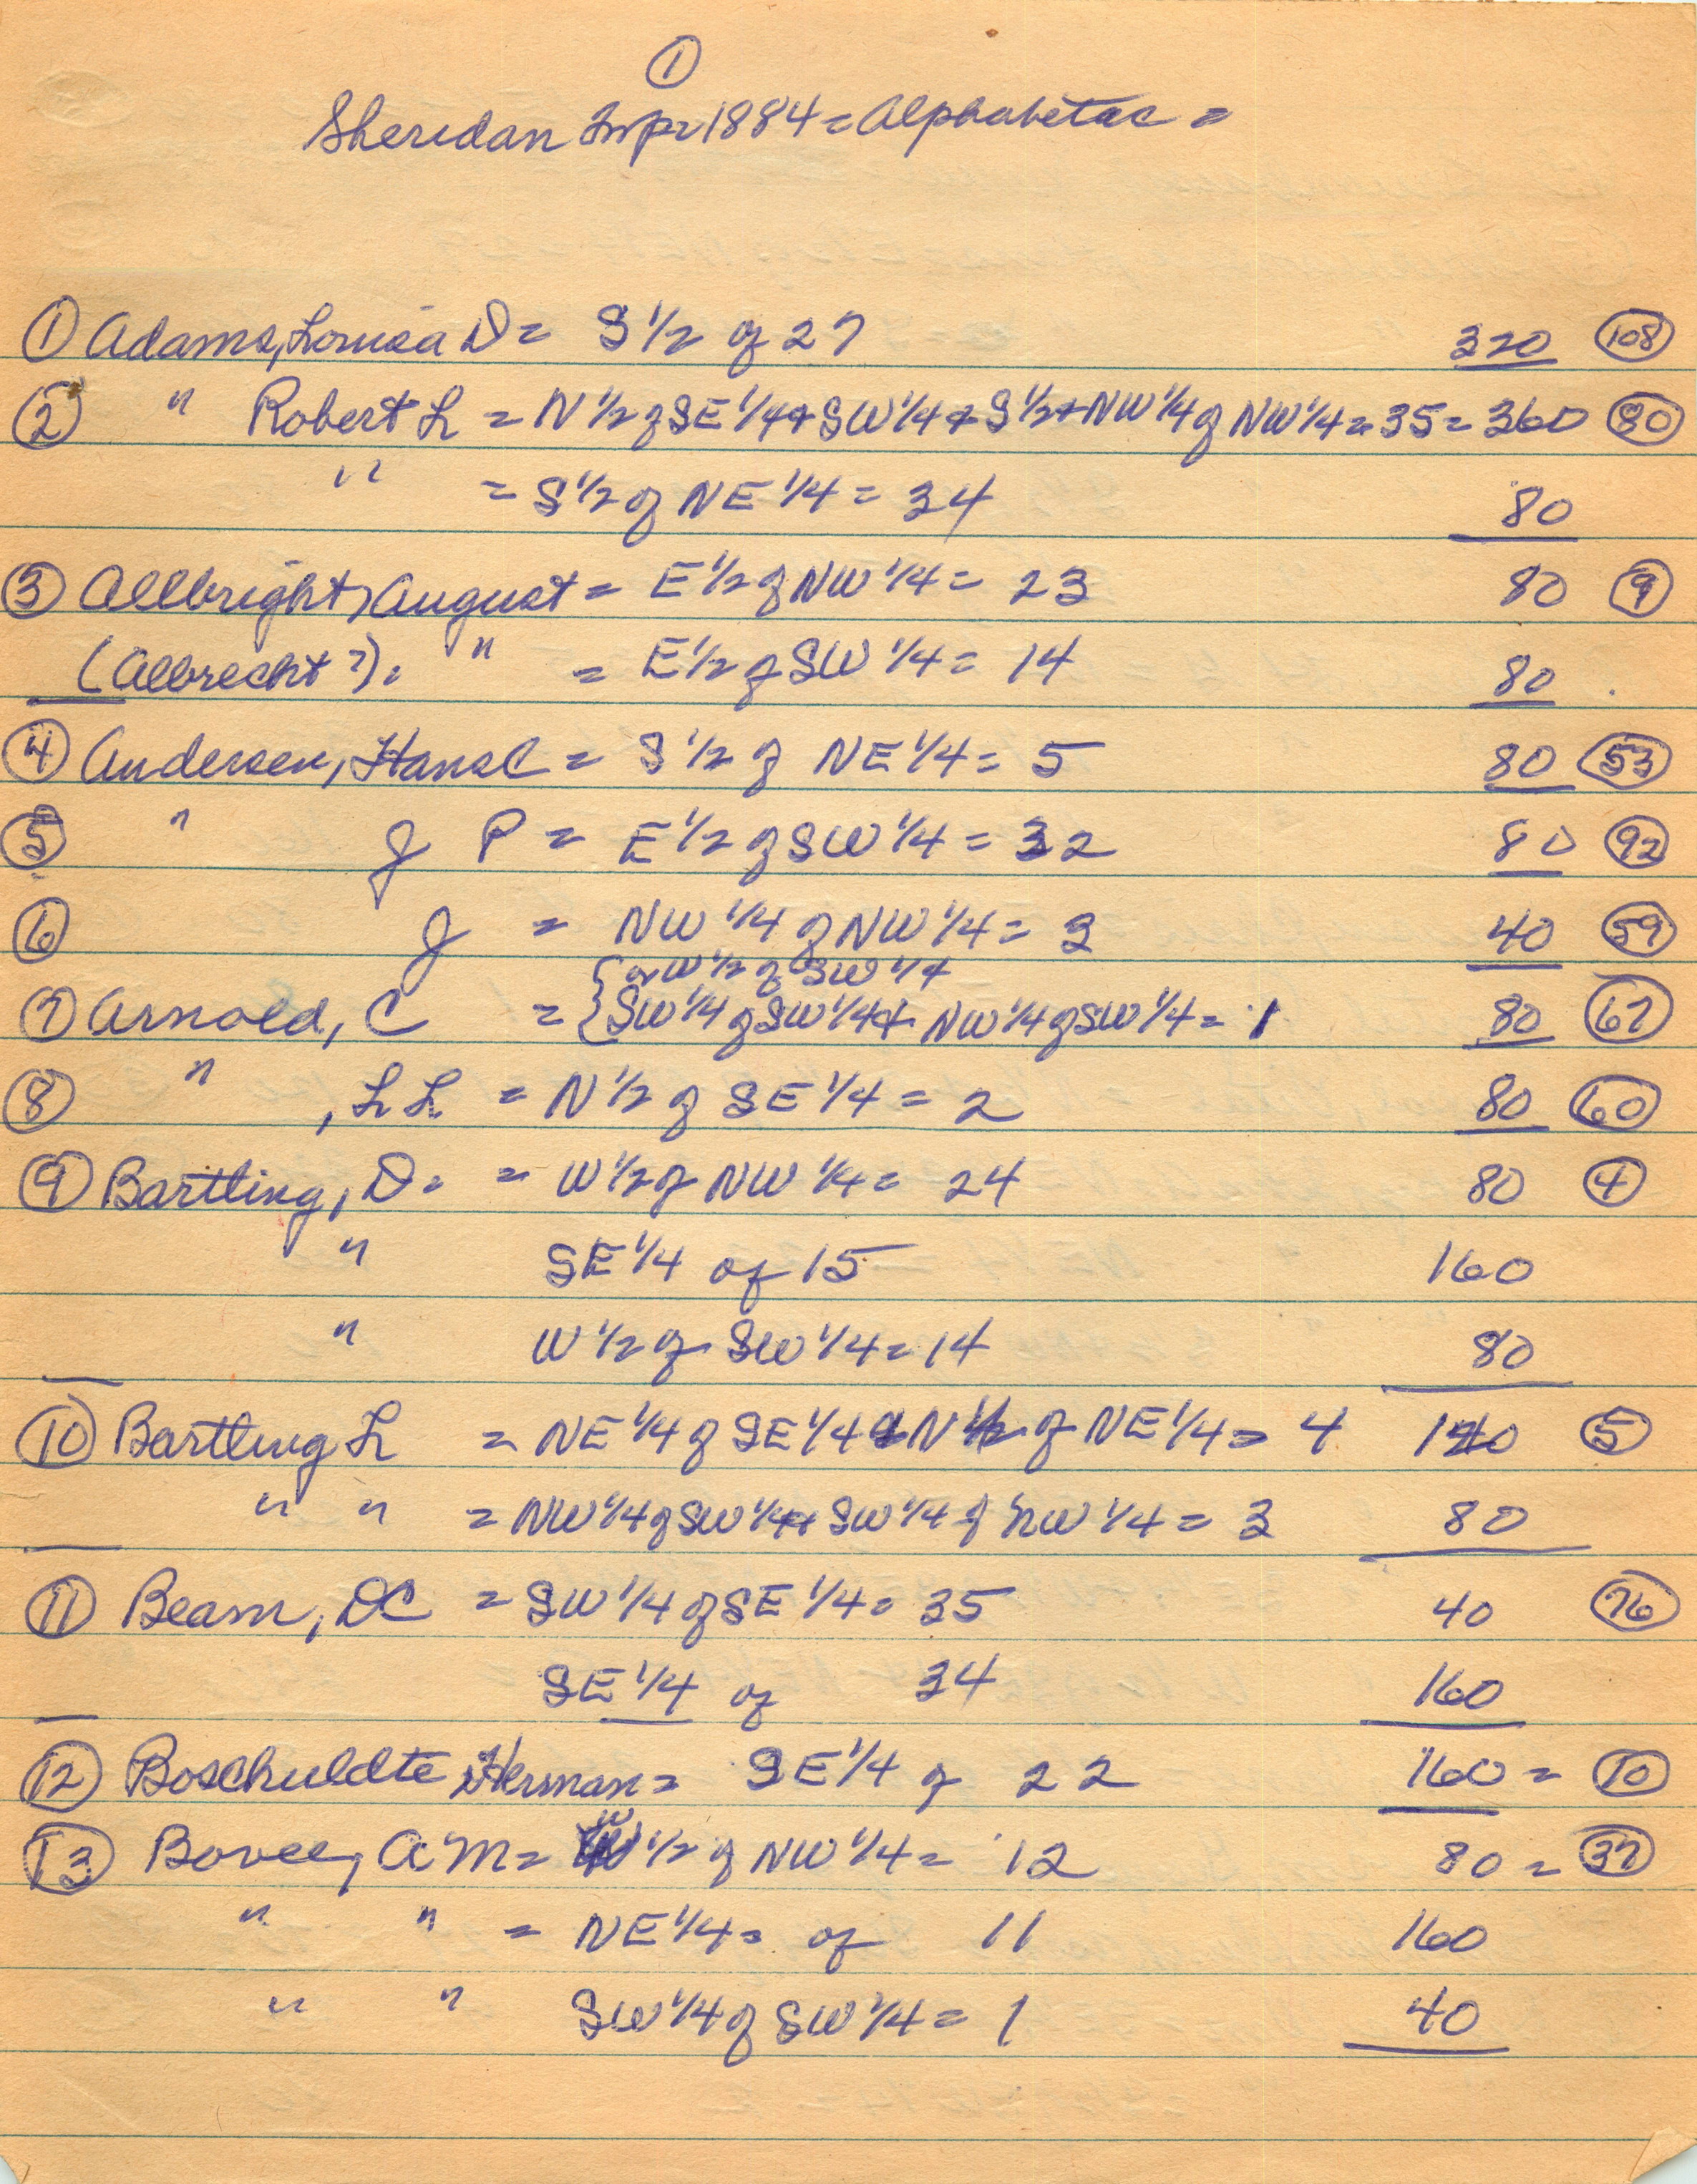 ①
Sheridan Twp = 1884 = Alphabetac =
① Adams, Louisa D = S 1/2 of 27 320 (108)
② " Robert L = N 1/2 of SE 1/4 + SW 1/4 + S 1/2 + NW 1/4 of NW 1/4 = 35 = 360 (80)
" = S 1/2 of NE 1/4 = 34 80
③ Allbright, August = E 1/2 of NW 1/4 = 23 80 (9)
(Albrecht?). " = E 1/2 of SW 1/4 = 14 80
④ Andersen, Hans C = S 1/2 of NE 1/4 = 5 80 (53)
⑤ " J P = E 1/2 of SW 1/4 = 32 80 (92)
⑥ J = NW 1/4 of NW 1/4 = 3 40 (59)
{or W 1/2 of SW 1/4
⑦ Arnold, C = {SW 1/4 of SW 1/4 + NW 1/4 of SW 1/4 = 1 80 (67)
⑧ " , L L = N 1/2 of SE 1/4 = 2 80 (60)
⑨ Bartling, D. = W 1/2 of NW 1/4 = 24 80 (4)
" SE 1/4 of 15 160
" W 1/2 of SW 1/4 = 14 80
⑩ Bartling L = NE 1/4 of SE 1/4 & N 1/2 of NE 1/4 = 4 120 (5)
" " = NW 1/4 of SW 1/4 + SW 1/4 of NW 1/4 = 3 80
⑪ Beam, DC = SW 1/4 of SE 1/4 = 35 40 (76)
SE 1/4 of 34 160
⑫ Boschuldte, Herman = SE 1/4 of 22 160 = (10)
⑬ Bovee, A M = W 1/2 of NW 1/4 = 12 80 = (37)
" " = NE 1/4 = of 11 160
" " SW 1/4 of SW 1/4 = 1 40